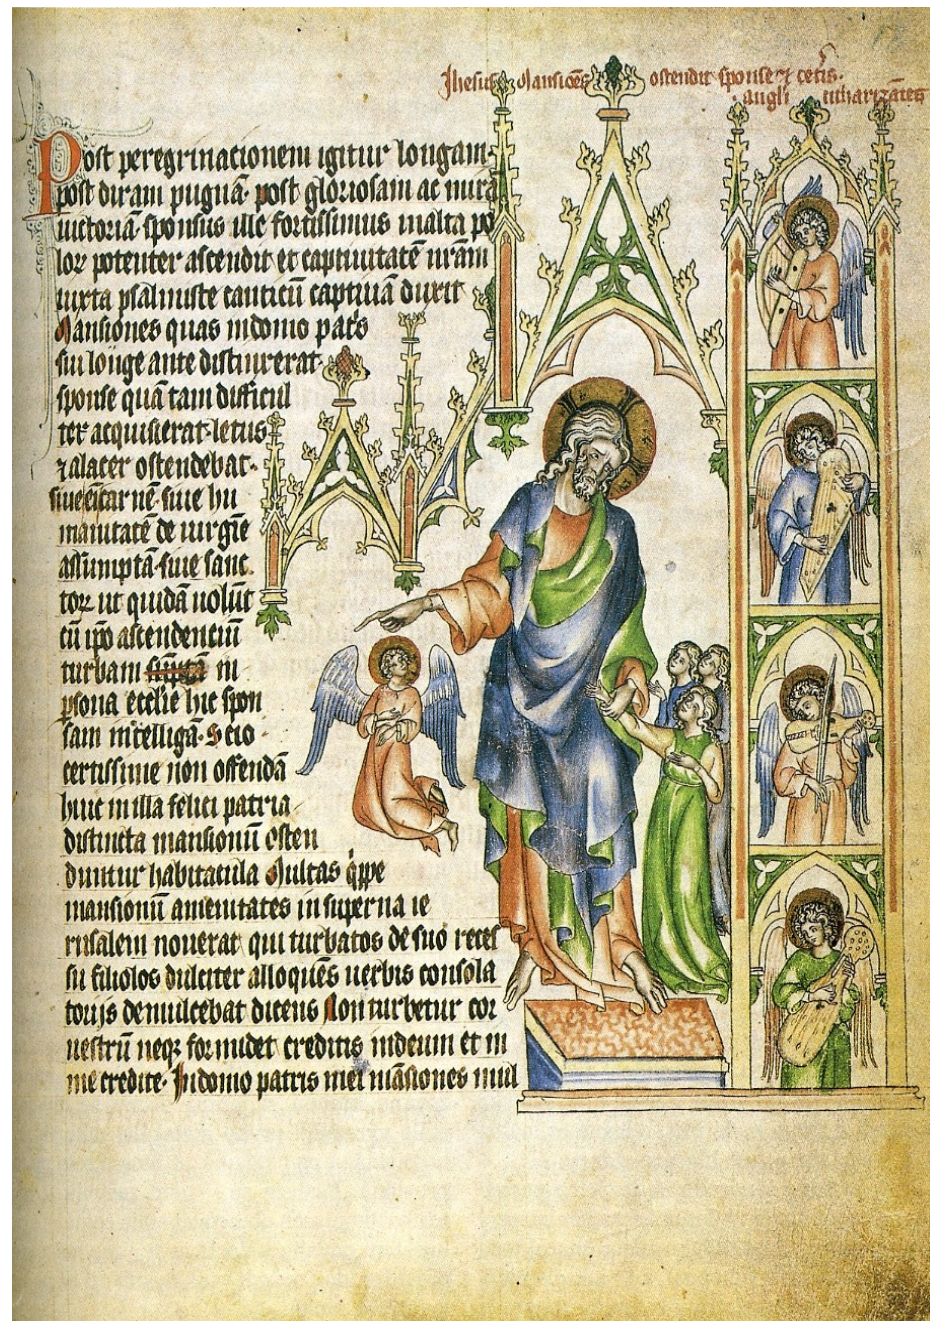 Jhesus Mansiões ostendit sponse ⁊ cetis.
angli citharizātes
Post peregrinacionem igitur longam·
post diram pugnā· post gloriosam ac mirā
uictoriā· sponsus ille fortissimus malta po
lor potenter ascendit et captiuitatē nrām
iuxta psalmiste canticū captiuā duxit
Mansiones quas indomo pat's
sui longe ante distinxerat·
sponse quā tam difficul
ter acquisierat· letus
⁊ alacer ostendebat·
siue eī carnē· siue hu
manitatē de uirgīe
assumptā· siue sanc
toꝝ ut quidā uolūt
cū ip̄o ascendenciū
turbam in
ꝑsona eccl'ie hic spon
sam intelligā· Scio
certissime non offendā
huic in illa felici patria
distincta mansionū osten
duntur habitacula Multas q̇ppe
mansionū amenitates in superna ie
rusalem nouerat qui turbatos de suo reces
su filiolos dulciter alloquēs uerbis consola
torijs demulcebat dicens Non turbetur cor
uestrū neqꝫ formidet creditis indeum et in
me credite· Indomo patris mei māsiones mul